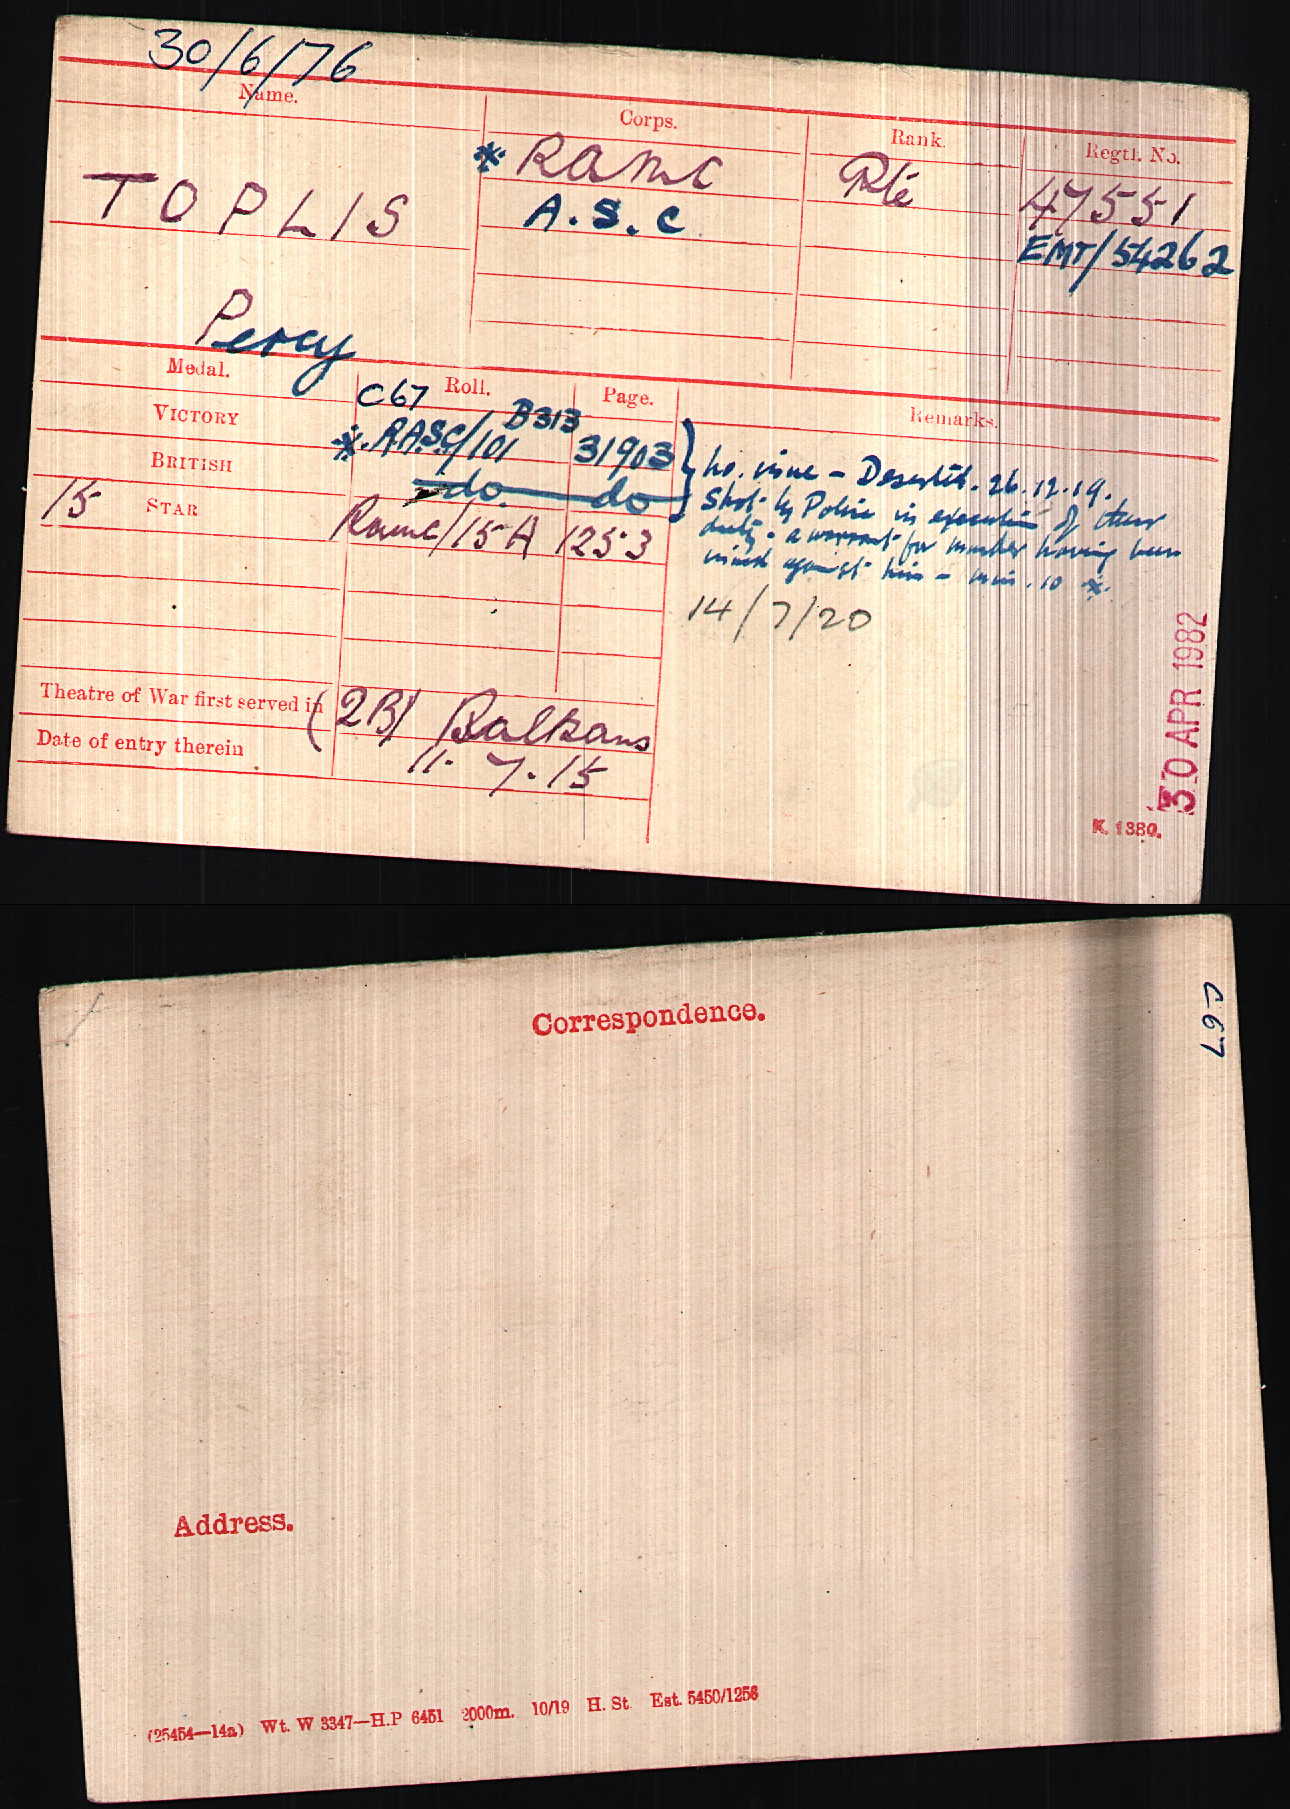 30/6/76
Name.
Corps.
Rank.
Regtl. No.
* RAMC
Pte
47551
TOPLIS
A.S.C.
EMT/54262
Percy
Medal.
C67
Roll.
Page.
Remarks.
VICTORY
*. RASC/101 B313
31903
BRITISH
do
do
15 STAR
RAMC/15A
1253
No. issue - Deserted. 26.12.19.
Shot by Police in execution of their
duty. a warrant for murder having been
issued against him - min. 10 *
14/7/20
Theatre of War first served in
(2B) Balkans
Date of entry therein
11.7.15
30 APR 1982
K. 1380.
Correspondence.
C67
Address.
(25454—14a) Wt. W 3347—H.P 6451 2000m. 10/19 H. St. Est. 5450/1256